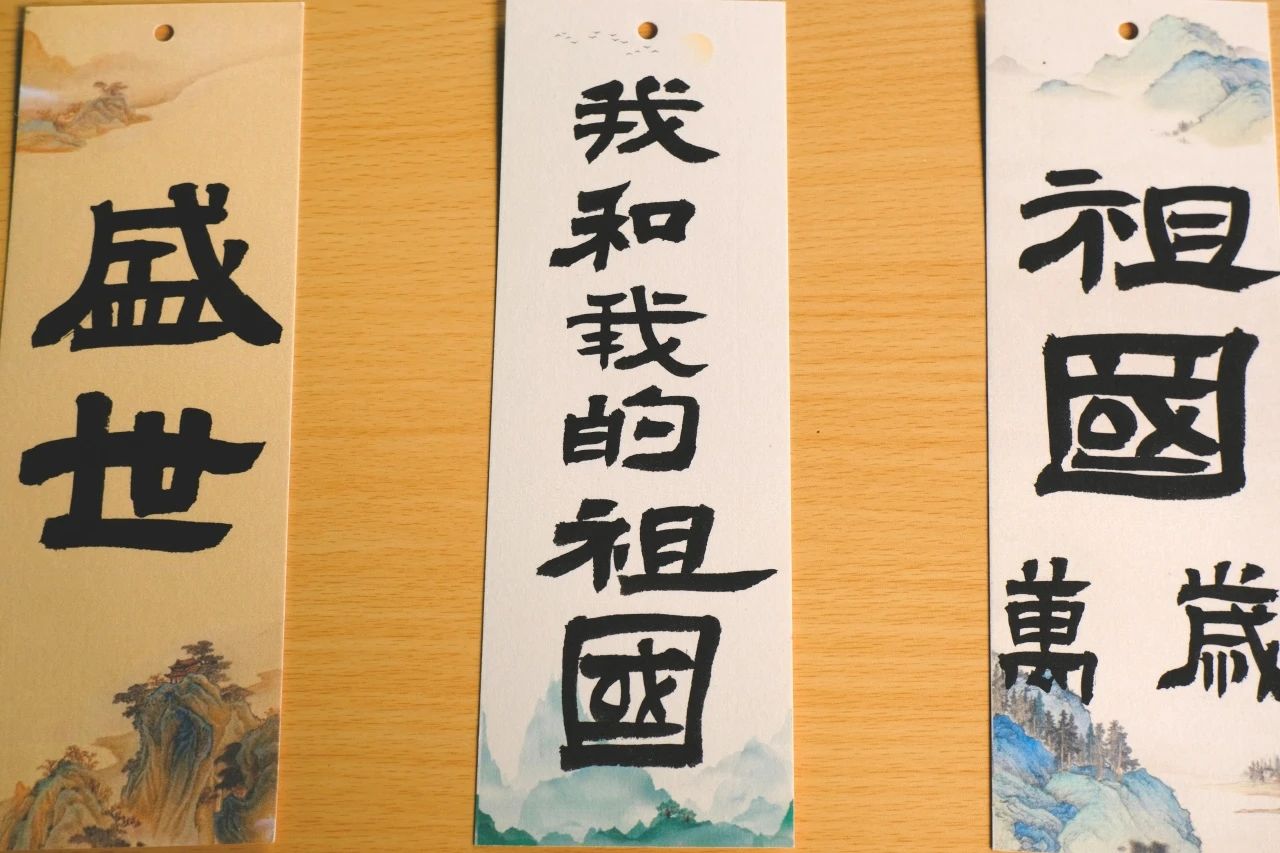 盛世
我和我的祖國
祖國
萬歲